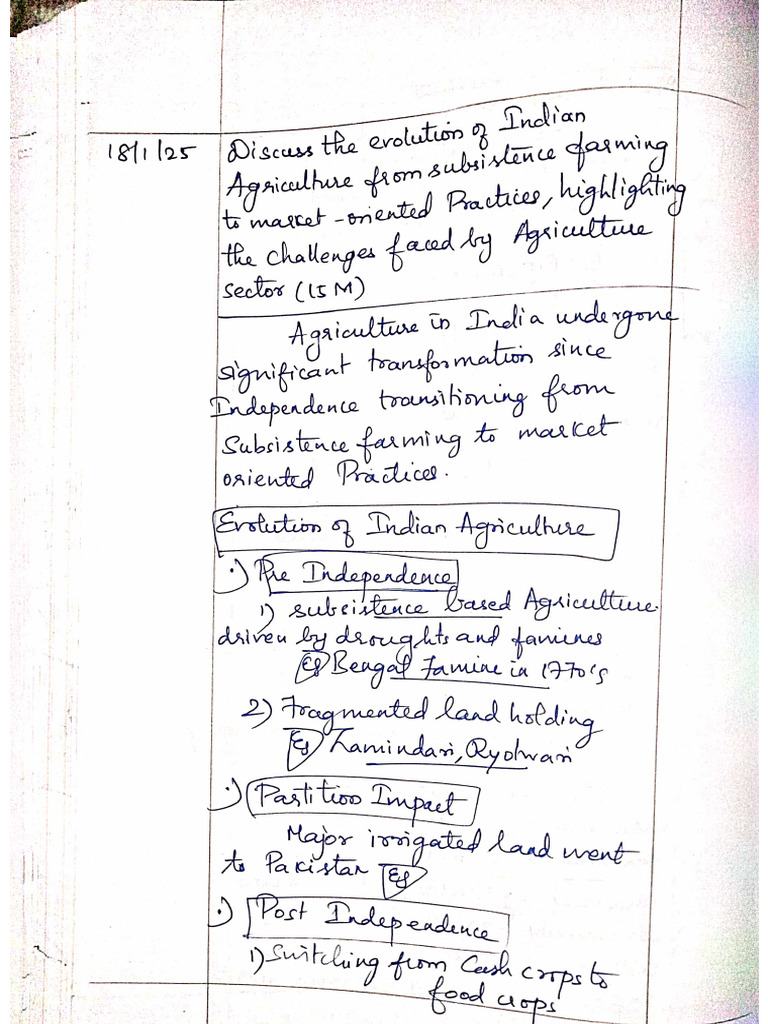 18/1/25
Discuss the evolution of Indian
Agriculture from subsistence farming
to market-oriented Practices, highlighting
the challenges faced by Agriculture
sector (15M)
Agriculture in India undergone
significant transformation since
Independence transitioning from
Subsistence farming to market
oriented Practices.
Evolution of Indian Agriculture
·) Pre Independence
1) subsistence based Agriculture
driven by droughts and famines
Eg Bengal Famine in 1770's
2) Fragmented land holding
Eg Zamindari, Ryotwari
·) Partition Impact
Major irrigated land went
to Pakistan Eg
·) Post Independence
1) Switching from Cash crops to
food crops